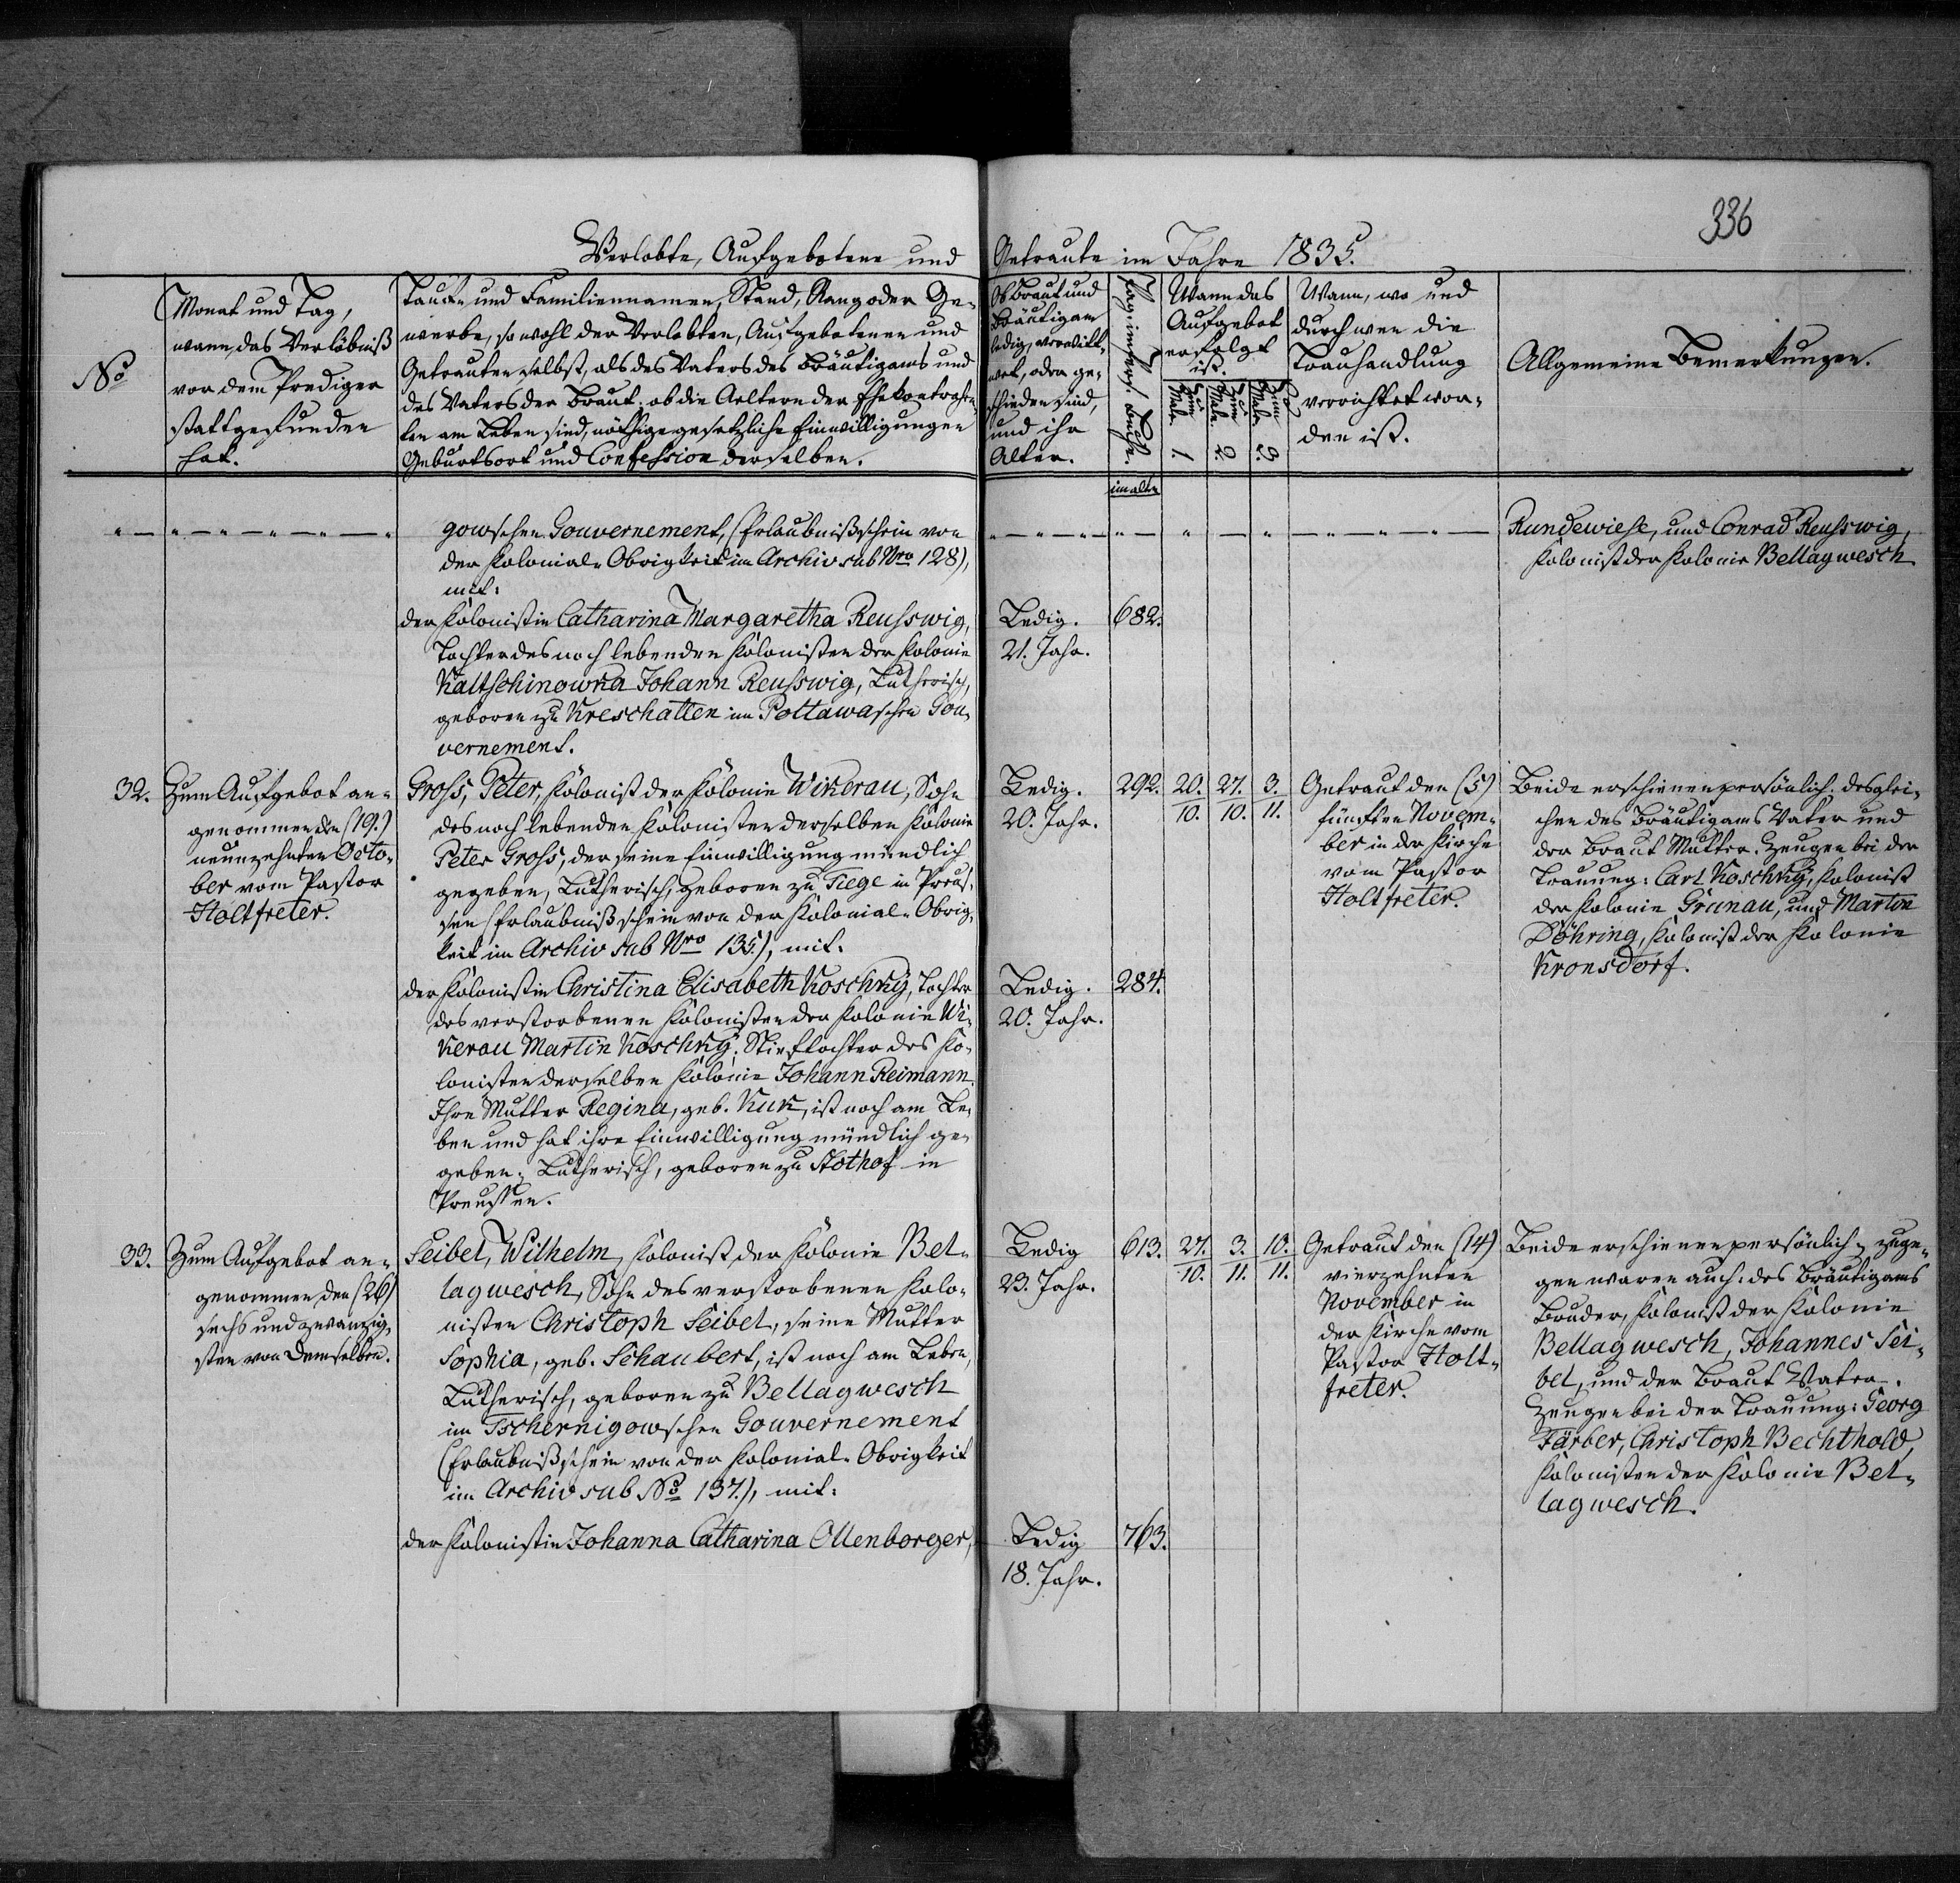 336
Verlobte, Aufgebotene und Getraute im Jahre 1835.
No
Monat und Tag,
wann das Verlöbniß
vor dem Prediger
stattgefunden
hat.
Tauf- und Familiennamen, Stand, Rang oder Ge-
werbe, sowohl der Verlobten, Aufgebotenen und
Getrauten selbst, als des Vaters des Bräutigams und
des Vaters der Braut; ob die Aeltern der Ehekontrahen-
ten am Leben sind, nöthige gesetzliche Einwilligungen
Geburtsort und Confession derselben.
Ob Braut und
Bräutigam
ledig, verwitt-
wet, oder ge-
schieden sind,
und ihr
Alter.
Wann das
Aufgebot
erfolgt
ist.
Zum 1. Male
Zum 2. Male
Zum 3. Male
Wann, wo und
durch wen die
Trauhandlung
verrichtet wor-
den ist.
Allgemeine Bemerkungen.
im alten
gowschen Gouvernement, (Erlaubnißschein von
der Kolonial-Obrigkeit im Archiv sub Nro 128),
mit:
der Kolonistin Catharina Margaretha Reusswig,
Tochter des noch lebenden Kolonisten der Kolonie
Kaltschinowka Johann Reusswig, Lutherisch,
geboren zu Kreschatten im Poltawaschen Gou-
vernement.
Ledig.
21. Jahr.
682.
Rundewiese, und Conrad Reusswig,
Kolonist der Kolonie Bellagwesch.
32.
Zum Aufgebot an-
genommen den (19.)
neunzehnten Octo-
ber vom Pastor
Holtfreter.
Gross, Peter, Kolonist der Kolonie Wikerau, Sohn
des noch lebenden Kolonisten derselben Kolonie
Peter Gross, der seine Einwilligung mündlich
gegeben, Lutherisch, geboren zu Tiege in Preus-
sen (Erlaubnißschein von der Kolonial-Obrig-
keit im Archiv sub Nro 135.), mit:
der Kolonistin Christina Elisabeth Koschky, Tochter
des verstorbenen Kolonisten der Kolonie Wi-
kerau Martin Koschky; Stieftochter des Ko-
lonisten derselben Kolonie Johann Reimann.
Ihre Mutter Regina, geb. Kuk, ist noch am Le-
ben und hat ihre Einwilligung mündlich ge-
geben; Lutherisch, geboren zu Stothof in
Preussen.
Ledig.
20. Jahr.
292.
20. 27. 3.
10. 10. 11.
Ledig.
20. Jahr.
284.
Getraut den (5)
fünften Novem-
ber in der Kirche
vom Pastor
Holtfreter.
Beide erschienen persönlich, desglei-
chen des Bräutigams Vater und
der Braut Mutter. Zeugen bei der
Trauung: Carl Koschky, Kolonist
der Kolonie Grunau, und Martin
Döhring, Kolonist der Kolonie
Kronsdorf.
33.
Zum Aufgebot an-
genommen den (26)
sechs und zwanzig-
sten von Demselben.
Seibel, Wilhelm, Kolonist der Kolonie Bel-
lagwesch, Sohn des verstorbenen Kolo-
nisten Christoph Seibel, seine Mutter
Sophia, geb. Schaubert, ist noch am Leben,
Lutherisch, geboren zu Bellagwesch
im Tschernigowschen Gouvernement
(Erlaubnißschein von der Kolonial-Obrigkeit
im Archiv sub No 137.), mit:
der Kolonistin Johanna Catharina Ollenborger,
Ledig
23. Jahr.
613.
27. 3. 10.
10. 11. 11.
Ledig
18. Jahr.
763.
Getraut den (14)
vierzehnten
November in
der Kirche vom
Pastor Holt-
freter.
Beide erschienen persönlich, zuge-
gen waren auch: des Bräutigams
Bruder, Kolonist der Kolonie
Bellagwesch, Johannes Sei-
bel, und der Braut Vater.
Zeugen bei der Trauung: Georg
Färber, Christoph Bechthold,
Kolonisten der Kolonie Bel-
lagwesch.